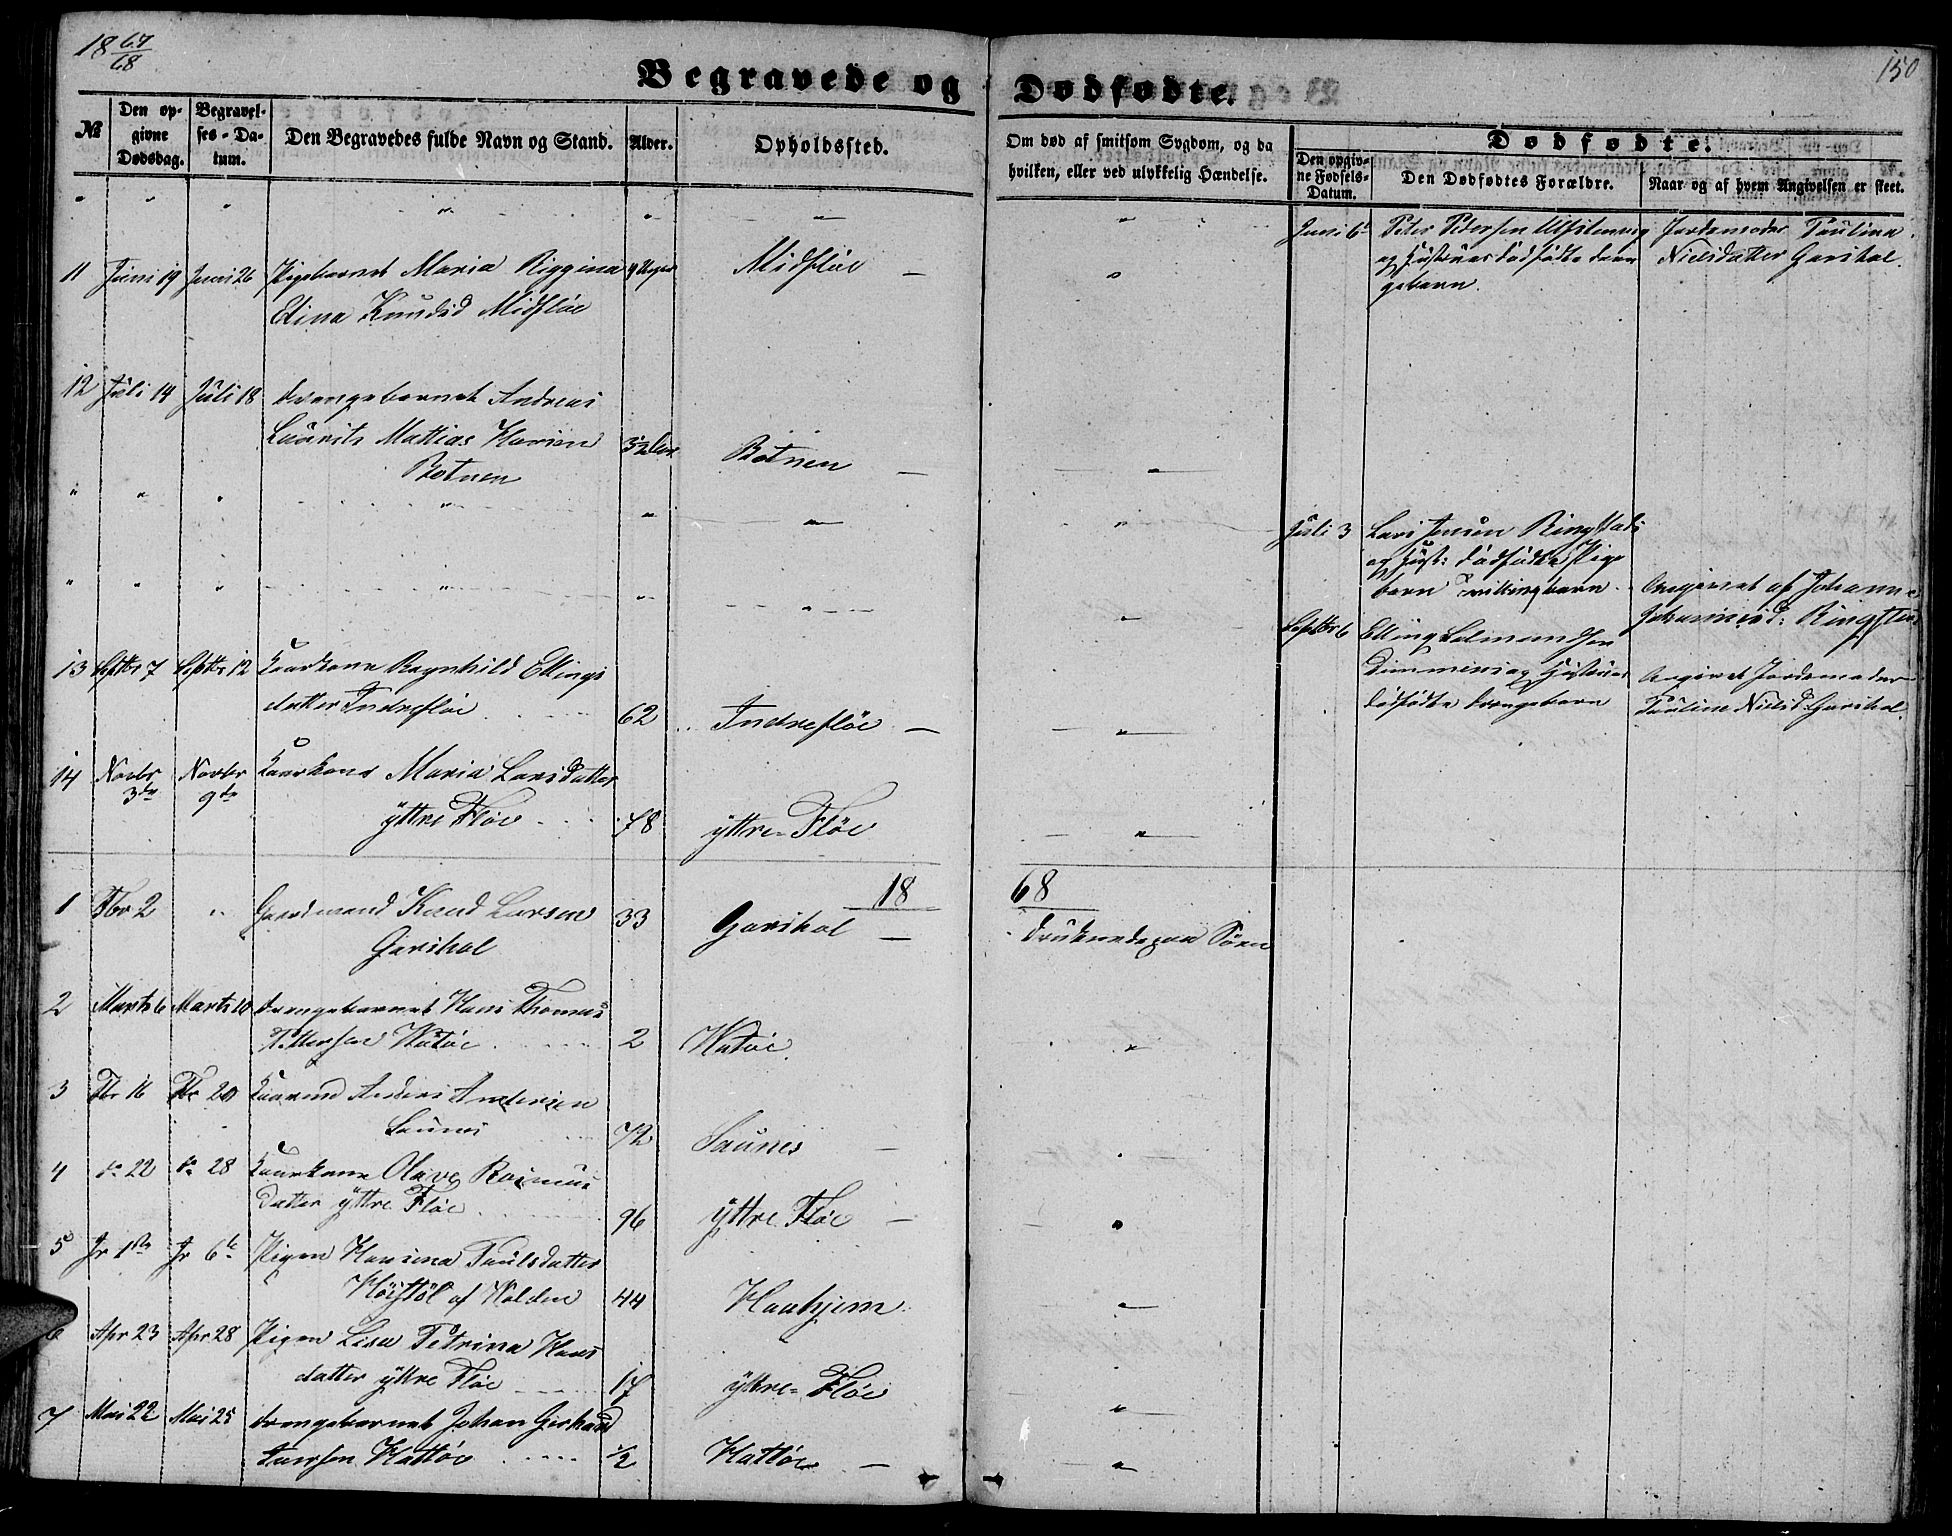 18 67/68
150
Begravede og Dødfødte.
№
Den opgivne Dødsdag.
Begravelses-Datum.
Den Begravedes fulde Navn og Stand.
Alder.
Opholdssted.
Om død af smitsom Sygdom, og da hvilken, eller ved ulykkelig Hændelse.
Dødfødte.
Den opgivne Fødsels-Datum.
Den Dødfødtes Forældre.
Naar og af hvem Angivelsen er skeet.
Juni 6
Peder Pedersen
og Hustrues dødfødte
gebarn.
Jordemoder Paulina
Nielsdatter Garshol.
11 Juni 19 Juni 26 Pigebarnet Maria Riggina Midfløe
Elina Knudsd Midfløe
12 Juli 14 Juli 18 Drengebarnet Andreas
Laurits Mattias Botnen
Botnen
Juli 3 Lars Jensen Ringstads
og Hust: dødfødte Pige
barn Tvillingbarn
Angivet af Johanne
Septbr 6 Elling
og Hustrues
dødfødte Drengebarn
Angivet Jordemoder
Pauline Nielsd. Garshol.
13 Septbr 7 Septbr 12 Kaarkone Ragnhild Ellings
datter Indrefløe 62 Indrefløe
14 Novbr 3die Novbr 9de Kaarkone Maria Larsdatter
Yttre Fløe 78 Yttre-Fløe
18 68
1 Fbr 2 Gaardmand Knud Larsen 33 Garshol Druknede paa Søen
Garshol
2 Marts 6 Marts 10 Drengebarnet Hans Thomas
Pettersen Hatøe 2 Hatøe
3 Fbr 16 Fbr 20 Kaarmd Anders Andersen
Saunes 72 Saunes
4 do 22 do 28 Kaarkone Olave Rasmus
datter Yttre Fløe 96 Yttre Fløe
5 Jr 1ste Jr 6te Pigen Hansina Paulsdatter
Høistøl af Volden 44 Haahjem
6 Apr 23 Apr 28 Pigen Lisa Petrina Hans
datter Yttre Fløe 17 Yttre-Fløe
7 Mai 22 Mai 25 Drengebarnet Johan Gerhard
Hattøe 1/2 Hattøe